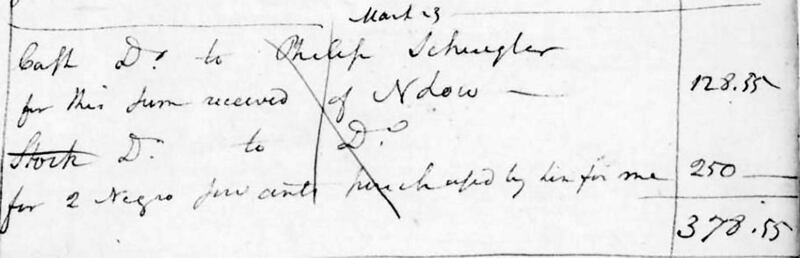 March 23
Cash Dr. to Philip Schuyler
for this sum received of N Low — 128.55
Stock Dr. to Do
for 2 Negro servants purchased by him for me 250 —
378.55